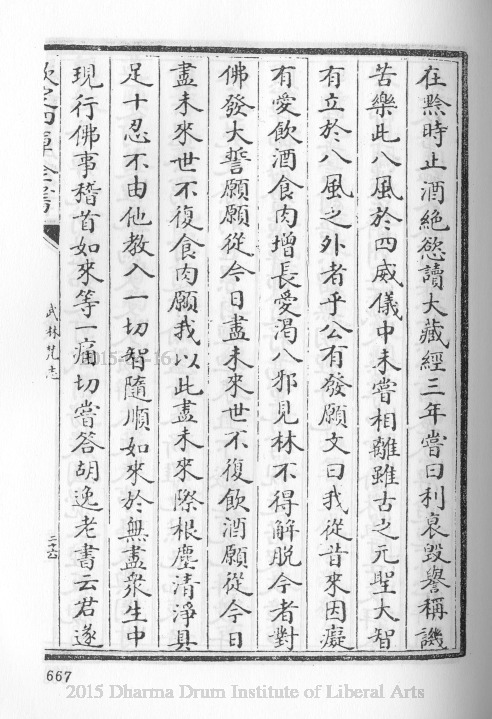 在黔時止酒絕慾讀大藏經三年嘗曰利衰毀譽稱譏
苦樂此八風於四威儀中未嘗相離雖古之元聖大智
有立於八風之外者乎公有發願文曰我從昔來因癡
有愛飲酒食肉增長愛渴入邪見林不得解脫今者對
佛發大誓願願從今日盡未來世不復飲酒願從今日
盡未來世不復食肉願我以此盡未來際根塵清淨具
足十忍不由他教入一切智隨順如來於無盡衆生中
現行佛事稽首如來等一痛切嘗答胡逸老書云君遂
欽定四庫全書
武林梵志
667
2015 Dharma Drum Institute of Liberal Arts